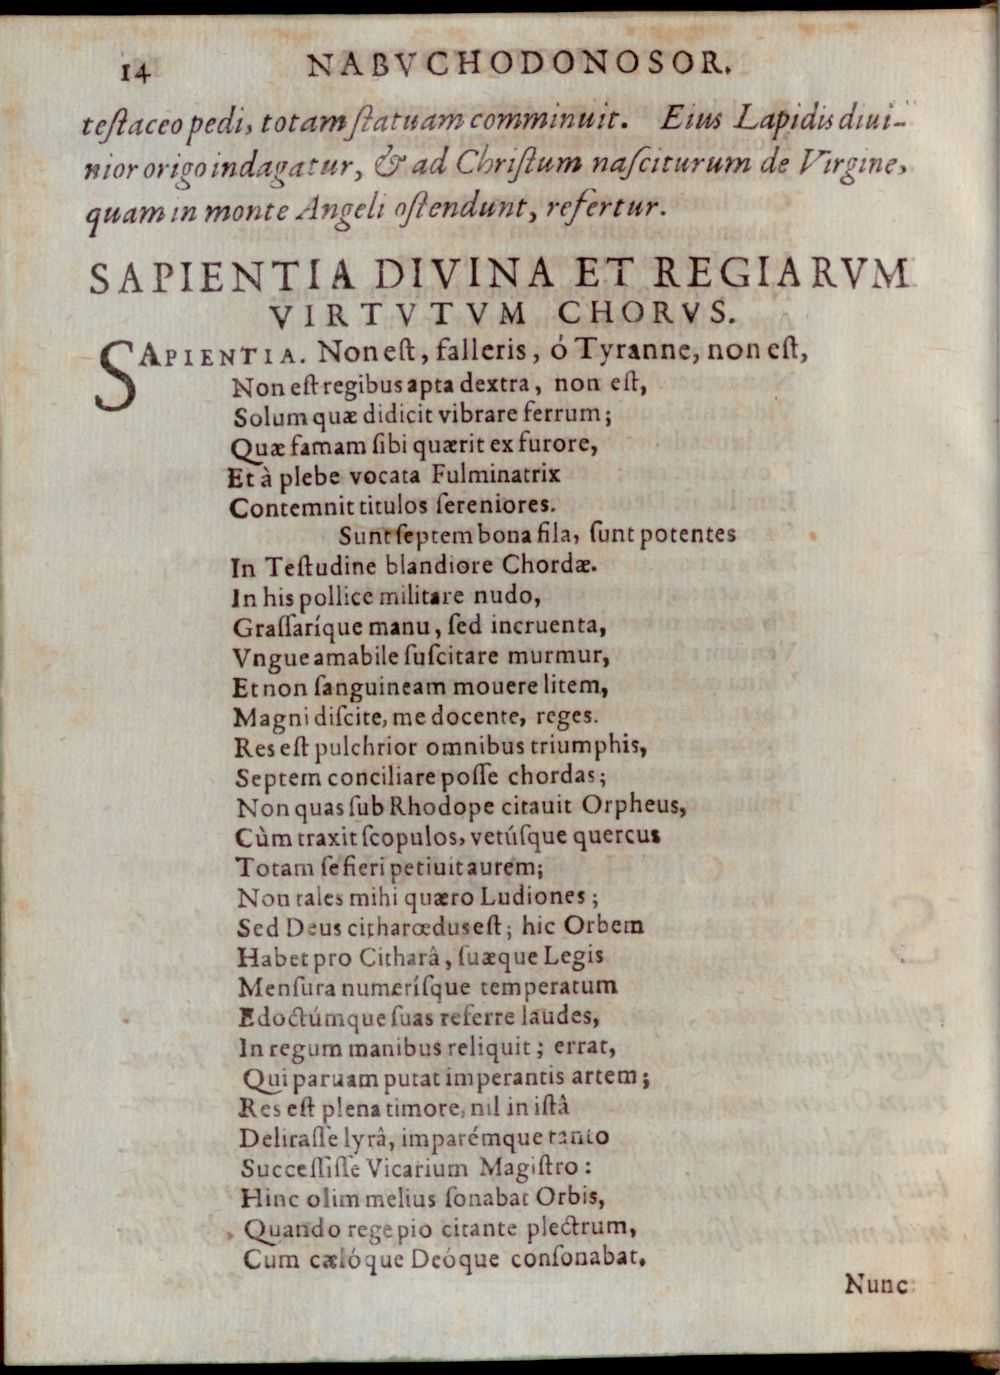 14 NABVCHODONOSOR.
teſtaceo pedi, totam ſtatuam comminuit. Eius Lapidis diui-
nior origo indagatur, & ad Chriſtum naſciturum de Virgine,
quam in monte Angeli oſtendunt, refertur.
SAPIENTIA DIVINA ET REGIARVM
VIRTVTVM CHORVS.
SAPIENTIA. Non eſt, falleris, ó Tyranne, non eſt,
Non eſt regibus apta dextra, non eſt,
Solum quæ didicit vibrare ferrum;
Quæ famam ſibi quærit ex furore,
Et à plebe vocata Fulminatrix
Contemnit titulos ſereniores.
Sunt ſeptem bona fila, ſunt potentes
In Teſtudine blandiore Chordæ.
In his pollice militare nudo,
Graſſaríque manu, ſed incruenta,
Vngue amabile ſuſcitare murmur,
Et non ſanguineam mouere litem,
Magni diſcite, me docente, reges.
Res eſt pulchrior omnibus triumphis,
Septem conciliare poſſe chordas;
Non quas ſub Rhodope citauit Orpheus,
Cùm traxit ſcopulos, vetúſque quercus
Totam ſe fieri petiuit aurem;
Non tales mihi quæro Ludiones;
Sed Deus citharœdus eſt; hic Orbem
Habet pro Citharâ, ſuæque Legis
Menſura numeríſque temperatum
Edoctúmque ſuas referre laudes,
In regum manibus reliquit; errat,
Qui paruam putat imperantis artem;
Res eſt plena timore, nil in iſtâ
Deliraſſe lyrâ, imparémque tanto
Succeſſiſſe Vicarium Magiſtro:
Hinc olim melius ſonabat Orbis,
Quando rege pio citante plectrum,
Cum cælóque Deóque conſonabat.
Nunc